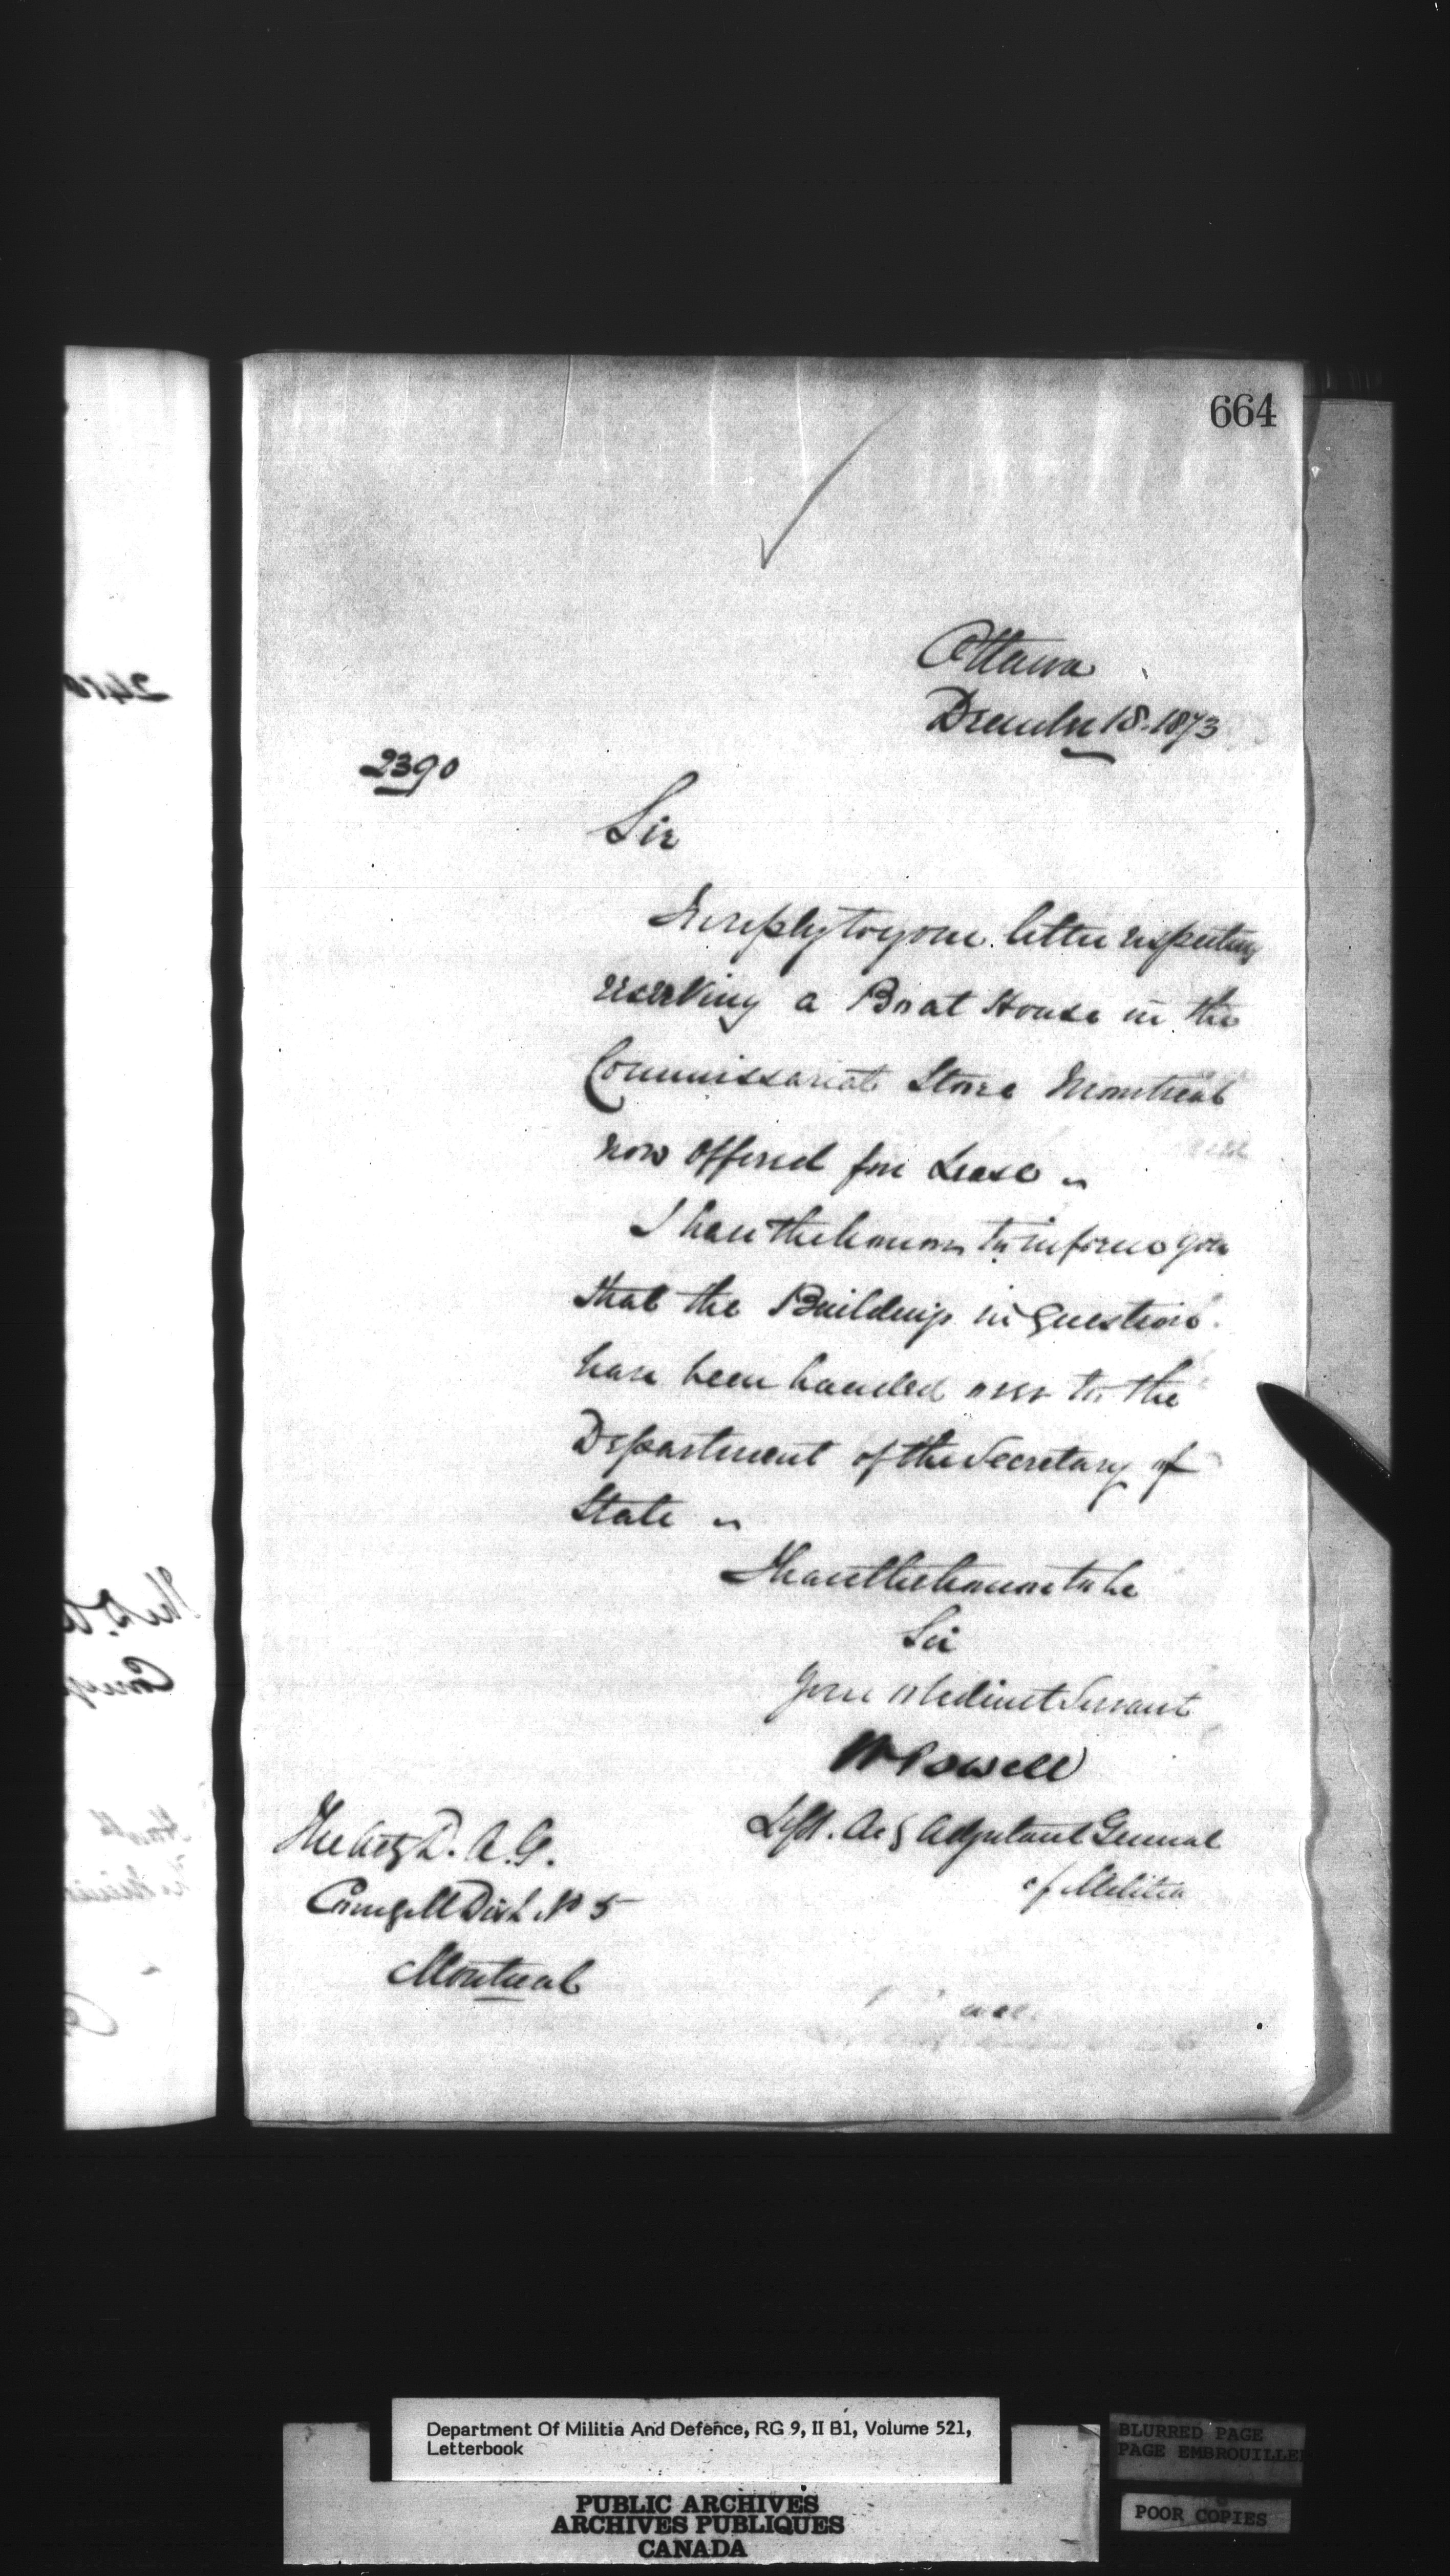 664
Ottawa
December 18. 1873
2390
Sir
In reply to your letter respecting
reserving a Boat House in the
Commissariat Store Montreal
now offered for Lease
I have the honour to inform you
that the Buildings in Question
have been handed over to the
Department of the Secretary of
State
I have the honour to be
Sir
Your obedient Servant
W Powell
Actg Adjutant General
of Militia
The Actg D. A. G.
Comg M Dist No 5
Montreal
Department Of Militia And Defence, RG 9, II B1, Volume 521,
Letterbook
PUBLIC ARCHIVES
ARCHIVES PUBLIQUES
CANADA
BLURRED PAGE
PAGE EMBROUILLE
POOR COPIES